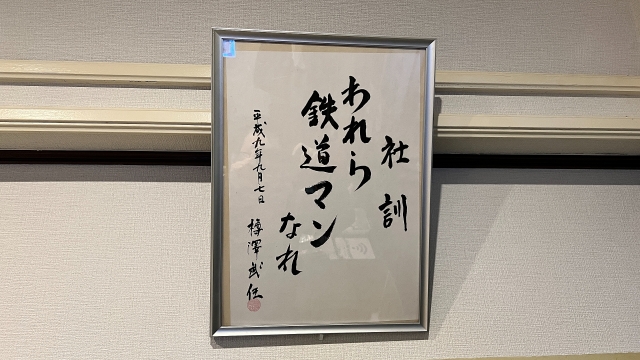 社訓
われら
鉄道マン
なれ
平成九年九月七日
樽澤武任